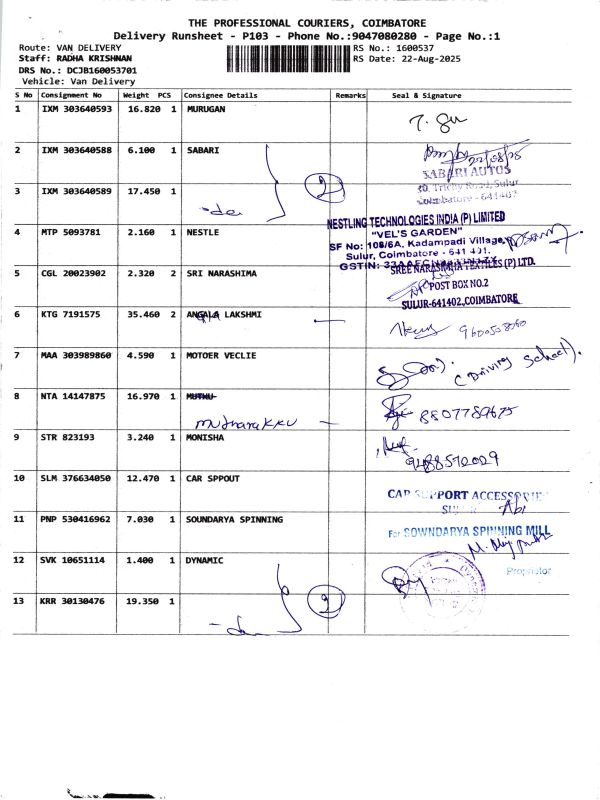 THE PROFESSIONAL COURIERS, COIMBATORE
Delivery Runsheet - P103 - Phone No.:9047080280 - Page No.:1
Route: VAN DELIVERY RS No.: 1600537
Staff: RADHA KRISHNAN RS Date: 22-Aug-2025
DRS No.: DCJB160053701
Vehicle: Van Delivery
S No Consignment No Weight PCS Consignee Details Remarks Seal & Signature
1 IXM 303640593 16.820 1 MURUGAN
2 IXM 303640588 6.100 1 SABARI 22/08/25
SABARI AUTOS
3 IXM 303640589 17.450 1 2 Trichy Road, Sulur
Coimbatore - 641402
NESTLING TECHNOLOGIES INDIA (P) LIMITED
4 MTP 5093781 2.160 1 NESTLE "VEL'S GARDEN"
SF No: 108/6A, Kadampadi Village,
Sulur, Coimbatore - 641 401.
GSTIN:
5 CGL 20023902 2.320 2 SRI NARASHIMA SREE NARASIMHA TEXTILES (P) LTD.
POST BOX NO.2
SULUR-641402,COIMBATORE
6 KTG 7191575 35.460 2 ANGALA LAKSHMI
7 MAA 303989860 4.590 1 MOTOER VECLIE (Driving School).
8 NTA 14147875 16.970 1 MUTHU 8807789675
9 STR 823193 3.240 1 MONISHA 9488572029
10 SLM 376634050 12.470 1 CAR SPPOUT CAR SUPPORT ACCESSORIES
SULUR
11 PNP 530416962 7.030 1 SOUNDARYA SPINNING For SOWNDARYA SPINNING MILL
Proprietor
12 SVK 10651114 1.400 1 DYNAMIC
13 KRR 30130476 19.350 1 2